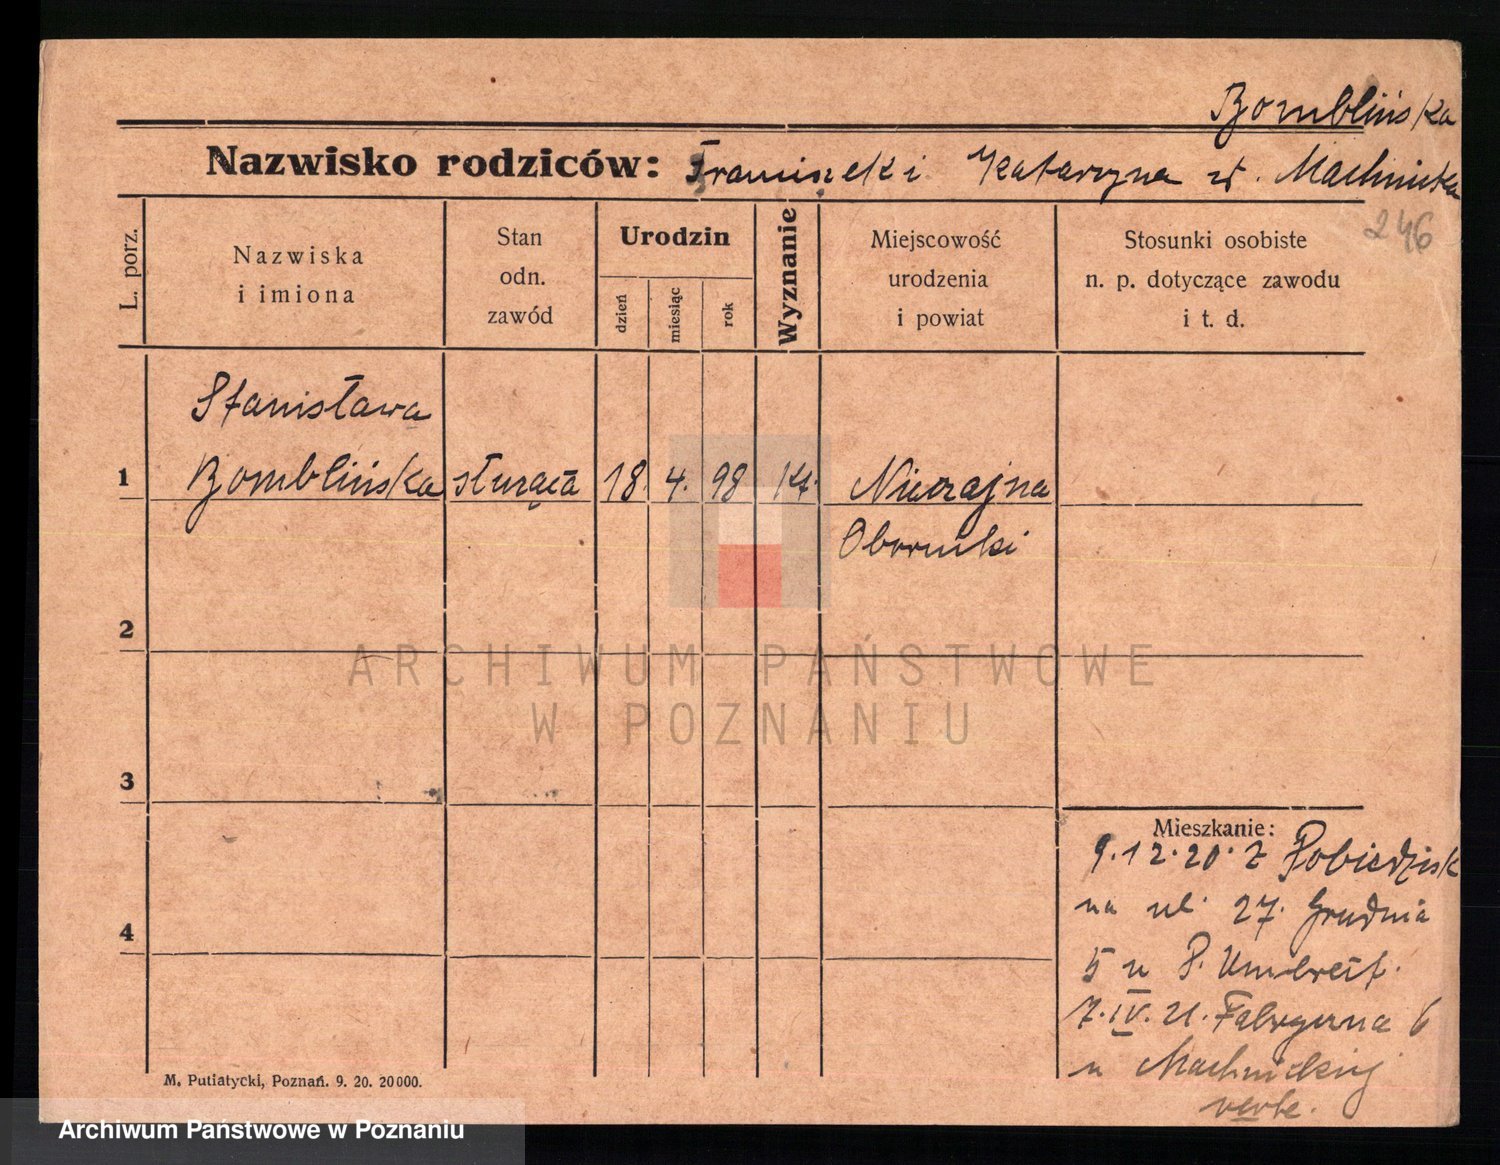 Bomblińska
Nazwisko rodziców: Franciszek i Katarzyna zd. Machnicka
246
L. porz.
Nazwiska
i imiona
Stan
odn.
zawód
Urodzin
dzień
miesiąc
rok
Wyznanie
Miejscowość
urodzenia
i powiat
Stosunki osobiste
n. p. dotyczące zawodu
i t. d.
Stanisława
1 Bomblińska służąca 18. 4. 98 kt. Nieczajna
Oborniki
2
3
4
Mieszkanie:
9.12.20. z Pobiedzisk
na ul. 27. Grudnia
5 u P. Umbreit.
7.IV.21. Fabryczna 6
u Machnickiej
M. Putiatycki, Poznań. 9. 20. 20000.
ARCHIWUM PAŃSTWOWE
W POZNANIU
Archiwum Państwowe w Poznaniu